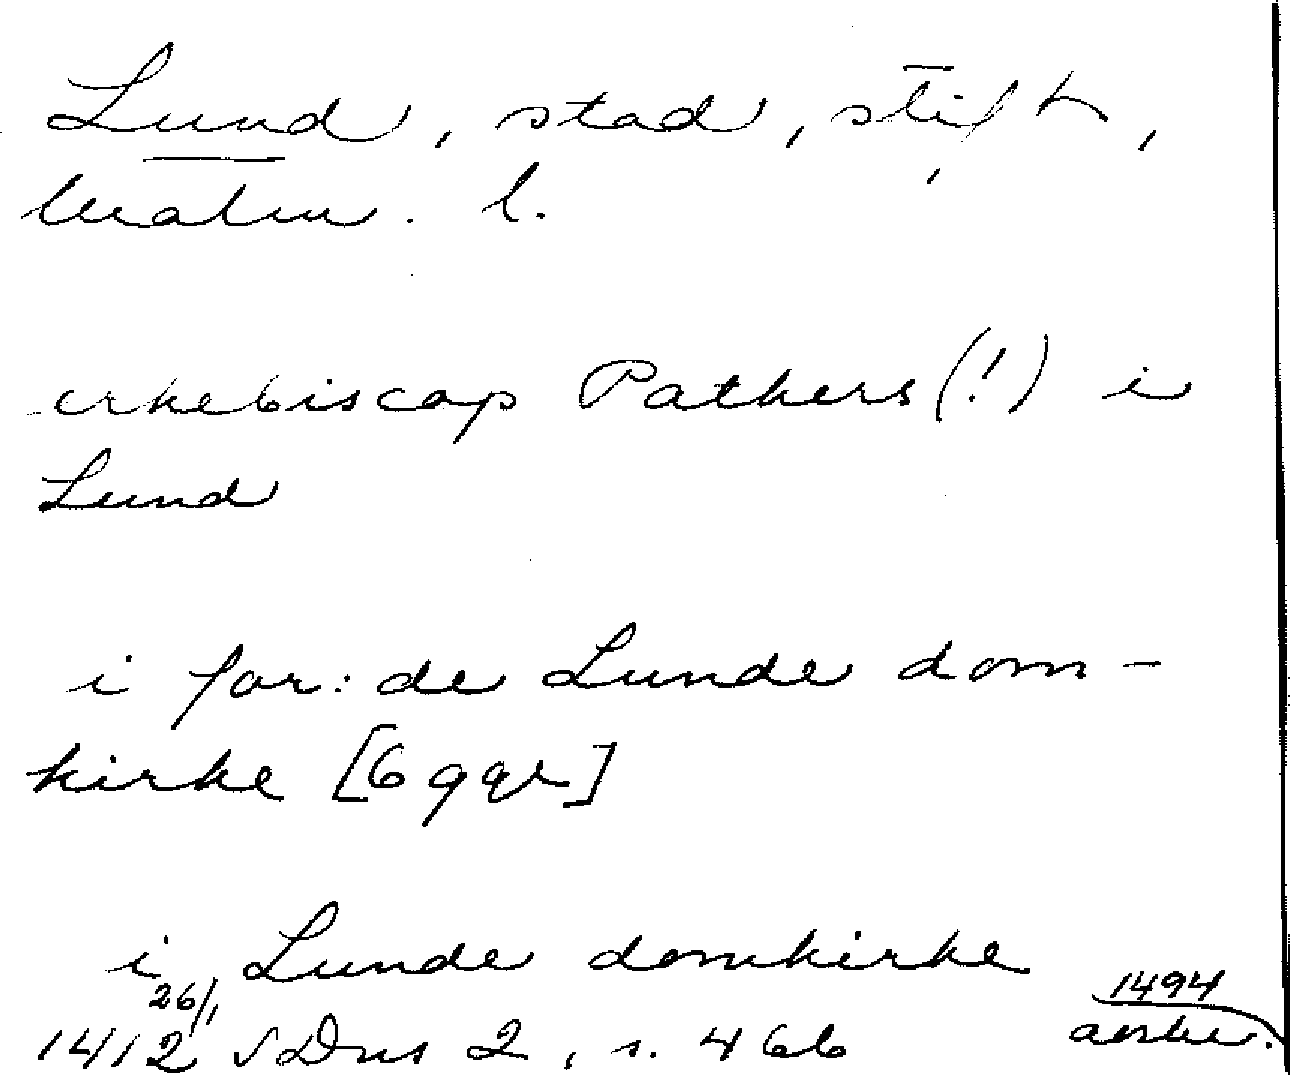 Lund, stad, stift,
Malm. l.
erkebiscop Pathers (!) i
Lund
i for: de Lunde dom-
kirke [6 ggr]
i Lunde domkirke
26/1
1412 SDns 2, s. 466
1494
avskr.